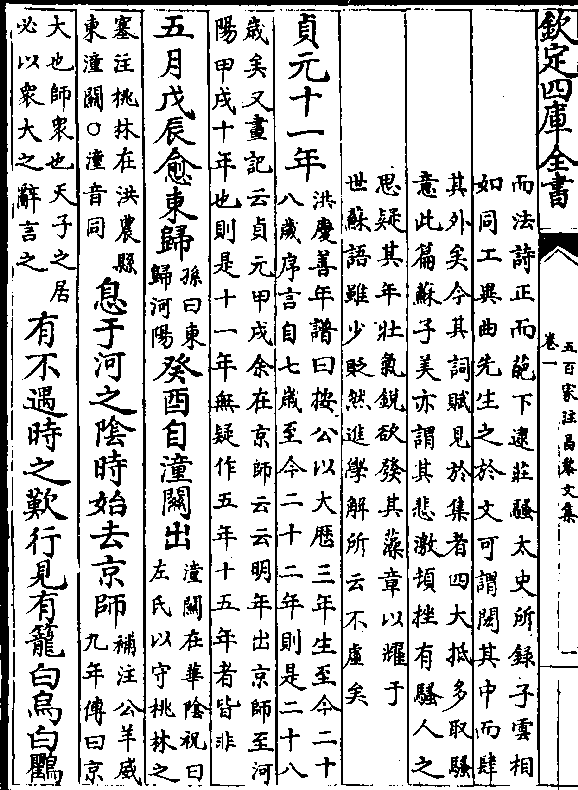 欽定四庫全書
五百家注昌黎文集
卷一
一
而法詩正而葩下逮莊騷太史所錄子雲相
如同工異曲先生之於文可謂閎其中而肆
其外矣今其詞賦見於集者四大抵多取騷
意此篇蘇子美亦謂其悲激頓挫有騷人之
思疑其年壯氣銳欲發其藻章以耀于
世蘇語雖少貶然進學解所云不虛矣
貞元十一年
洪慶善年譜曰按公以大厯三年生至今二十
八歲序言自七歲至今二十二年則是二十八
歲矣又畫記云貞元甲戌余在京師云云明年出京師至河
陽甲戌十年也則是十一年無疑作五年十五年者皆非
五月戊辰愈東歸
孫曰東
歸河陽
癸酉自潼關出
潼關在華陰祝曰
左氏以守桃林之
塞注桃林在洪農縣
東潼關○潼音同
息于河之陰時始去京師
補注公羊威
九年傳曰京
大也師衆也天子之居
必以衆大之辭言之
有不遇時之歎行見有籠白烏白鸜